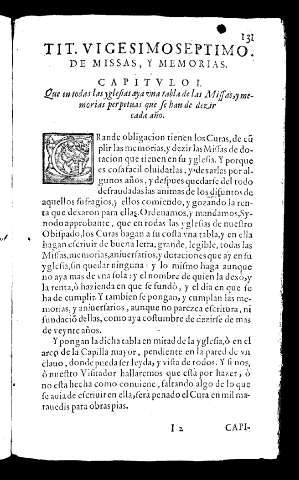 131
TIT. VIGESIMOSEPTIMO.
DE MISSAS, Y MEMORIAS.
CAPITVLO I.
Que en todas las yglesias aya vna tabla de las Missas, y me-
morias perpetuas que se han de dezir
cada año.
GRande obligacion tienen los Curas, de cũ
plir las memorias, y dezir las Missas de do-
tacion que tienen en su yglesia. Y porque
es cosa facil oluidarlas, y dexarlas por al-
gunos años, y despues quedarse del todo
defraudadas las animas de los difuntos de
aquellos sufragios, y ellos comiendo, y gozando la ren-
ta que dexaron para ellas. Ordenamos, y mandamos, Sy-
nodo approbante, que en todas las yglesias de nuestro
Obispado, los Curas hagan a su costa vna tabla, y en ella
hagan escriuir de buena letra, grande, legible, todas las
Missas, memorias, aniuersarios, y dotaciones que ay en su
yglesia, sin quedar ninguna: y lo mismo haga aunque
no aya mas de vna sola: y el nombre de quien la dexo, y
la renta, ò hazienda en que se fundò, y el dia en que se
ha de cumplir. Y tambien se pongan, y cumplan las me-
morias, y aniuersarios, aunque no parezca escritura, ni
fundació dellas, como aya costumbre de dezirse de mas
de veynte años.
Y pongan la dicha tabla en mitad de la yglesia, ò en el
arco de la Capilla mayor, pendiente en la pared de vn
clauo, donde pueda ser leyda, y vista de todos. Y si nos,
ò nuestro Visitador hallaremos que està por hazer, ò
no està hecha como conuiene, faltando algo de lo que
se auia de escriuir en ella, serà penado el Cura en mil ma-
rauedis para obras pias.
I 2 CAPI-